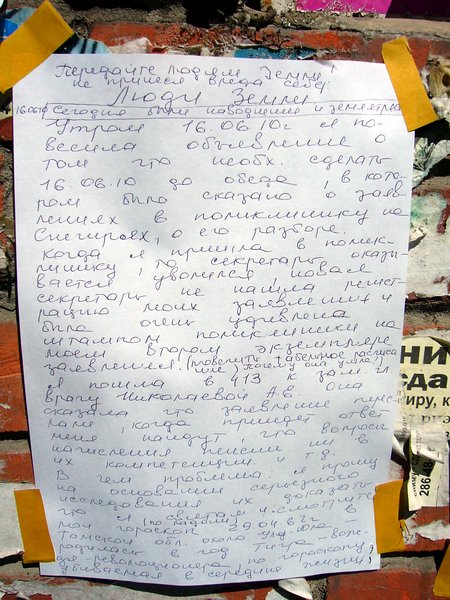 Передайте людям Земли!
не причиняя вреда себе
Люди Земли
16.06.10 Сегодня были наводнения и землетряс
Утром 16.06.10г я по-
весила объявление о
том что необх. сделать
16.06.10 до обеда, в кото-
ром было сказано о заяв-
лениях в поликлинику на
Снегирях, о его разборе.
когда я пришла в полик-
линику, то секретарь оказы-
вается уволился новая
секретарь не нашла регист-
рацию моих заявлений и
была очень удивлена
штампом поликлиники на
моем втором экземпляре
заявления. (проверить табельное расписа
ние, почему она ушла?)
Я пошла в 413 к зам. гл
врачу Николаевой А.Б. Она
сказала что заявление пере-
дали, когда придет ответ
меня найдут, что вопросы
начисления пенсии не в
их компетенции. и т.д.
В чем проблема: я прошу
на основании серьезного
исследования их доказать
что я святая и смотрите
мой гороскоп 29.04.62г. в
(по падам)
Томской обл. около
родилась в год Тигра
для революционера по гороскопу,
убиваемая в середине жизни,
ни
сда
тиру, к
286-48